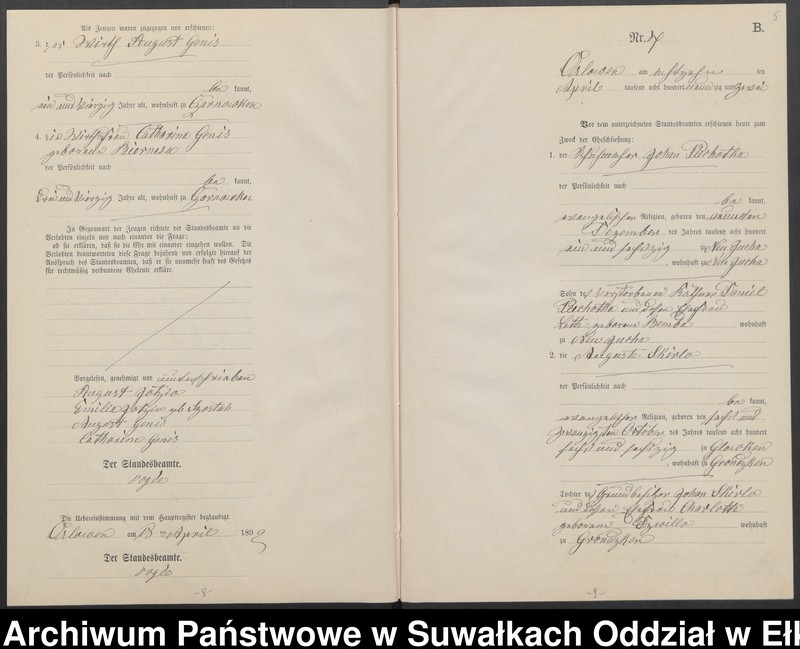 Als Zeugen waren zugezogen und erschienen:
3. der Wirth August Genis
der Persönlichkeit nach
be kannt,
ein und vierzig Jahre alt, wohnhaft zu Gronowken
4. die Wirthsfrau Catharine Genis
geborene
der Persönlichkeit nach
be kannt,
drei und vierzig Jahre alt, wohnhaft zu
In Gegenwart der Zeugen richtete der Standesbeamte an die
Verlobten einzeln und nach einander die Frage:
ob sie erklären, daß sie die Ehe mit einander eingehen wollen. Die
Verlobten beantworteten diese Frage bejahend und erfolgte hierauf der
Ausspruch des Standesbeamten, daß er sie nunmehr kraft des Gesetzes
für rechtmäßig verbundene Eheleute erkläre.
Vorgelesen, genehmigt und unterschrieben
August
Emilie geb
August Genis
Catharine Genis
Der Standesbeamte.
Die Uebereinstimmung mit dem Hauptregister beglaubigt.
Orlowen am April 189
Der Standesbeamte.
-8-
5
B.
Nr.
Orlowen am achtzehn ten
April tausend acht hundert neun zig und zwei
Vor dem unterzeichneten Standesbeamten erschienen heute zum
Zweck der Eheschließung:
1. der Schuhmacher Johan Plochotka
der Persönlichkeit nach
be kannt,
evangelischer Religion, geboren den neunten
Dezember des Jahres tausend acht hundert
ein und sechszig zu Neu Jucha
, wohnhaft zu Neu Jucha
Sohn des verstorbenen Käthner Daniel
Plochotka und dessen Ehefrau
Lotte geborene Bemba wohnhaft
zu Neu Jucha
2. die Auguste Skirlo
der Persönlichkeit nach
be kannt,
evangelischer Religion, geboren den sechs und
zwanzigsten October des Jahres tausend acht hundert
sechs und sechszig zu Glowken
, wohnhaft zu Grondzken
Tochter des Grundbesitzer Johan Skirlo
und dessen Ehefrau Charlotte
geborene wohnhaft
zu Grondzken
-9-
Archiwum Państwowe w Suwałkach Oddział w Ełk